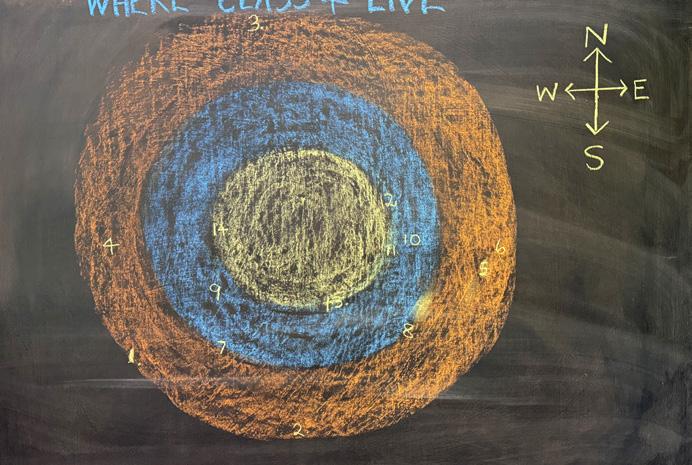 WHERE CLASS 4 LIVE
3
N
W E
S
12
14
11 10
4
6
5
9
13
8
7
1
2